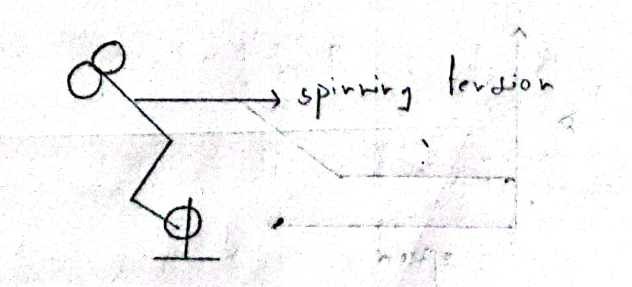 spinning tension